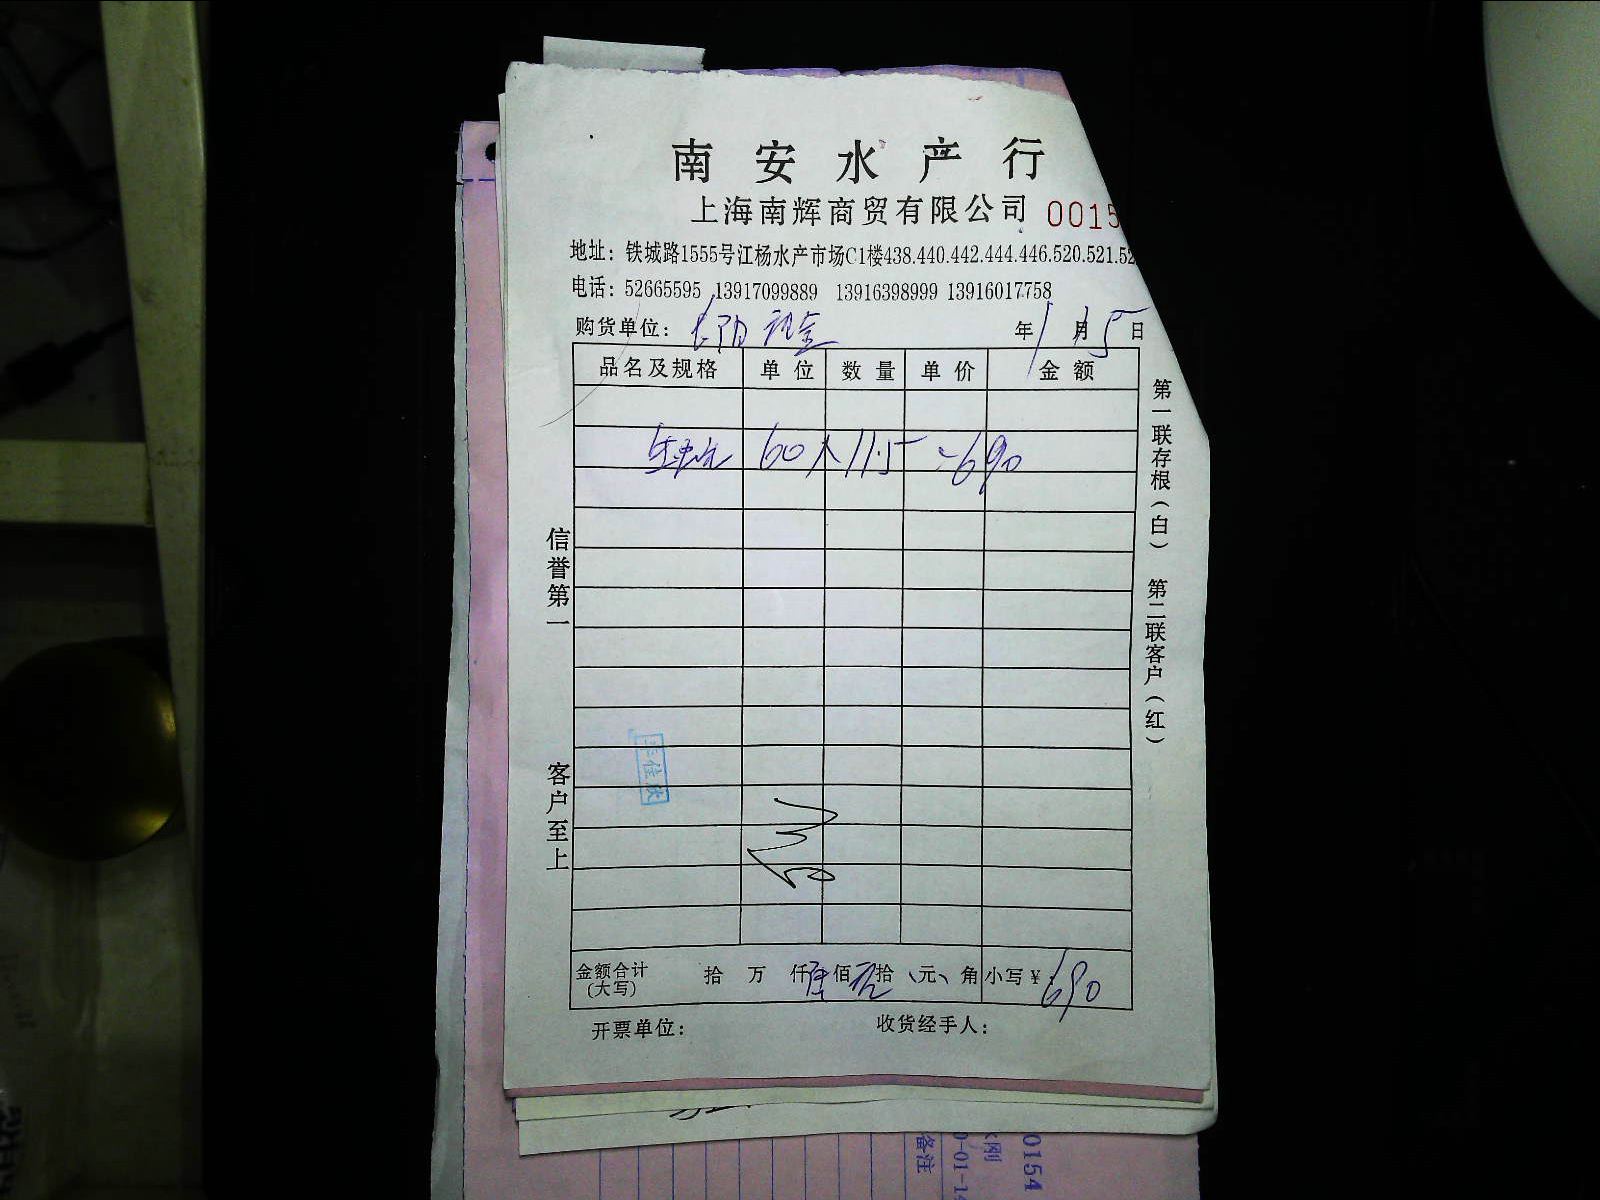 南安水产行
上海南辉商贸有限公司 0015
地址：铁城路1555号江杨水产市场C1楼438.440.442.444.446.520.521.52
电话：52665595 13917099889 13916398999 13916017758
购货单位： 年1月5日
品名及规格 单位 数量 单价 金额
60 11.5 690
第一联存根（白） 第二联客户（红）
信誉第一
客户至上
佳欣
金额合计 拾 万 仟陆佰玖拾 元 角 小写￥：690
(大写)
开票单位： 收货经手人：
0154
刚
0-01-14
备注